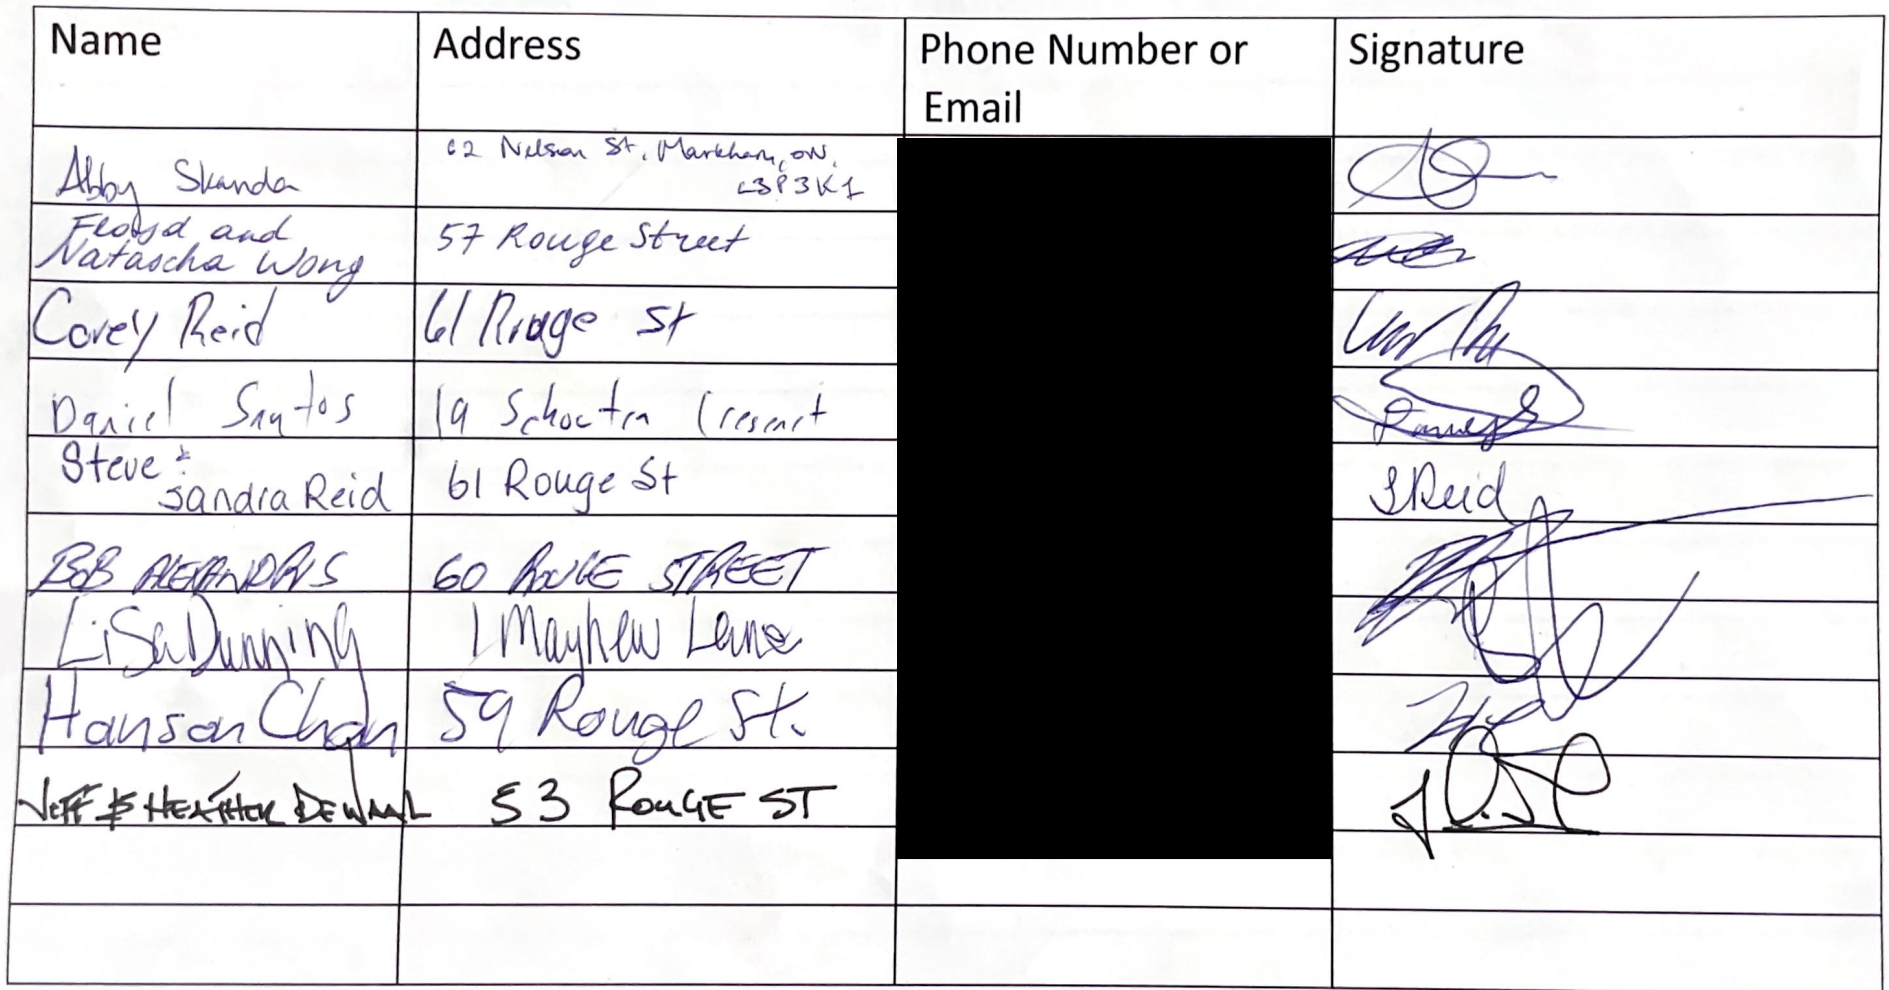 Name Address Phone Number or Signature
Email
Abby Skanda 62 Nelson St. Markham, ON,
L3P3K1
Floyd and
Natascha Wong 57 Rouge Street
Corey Reid 61 Rouge St
Daniel Santos 19 Schouten Crescent
Steve &
Sandra Reid 61 Rouge St SReid
BOB ALEXANDRIS 60 ROUGE STREET
Lisa Dunning 1 Mayhew Lane
Hanson Chan 59 Rouge St.
JEFF & HEATHER DEWAAL 53 ROUGE ST